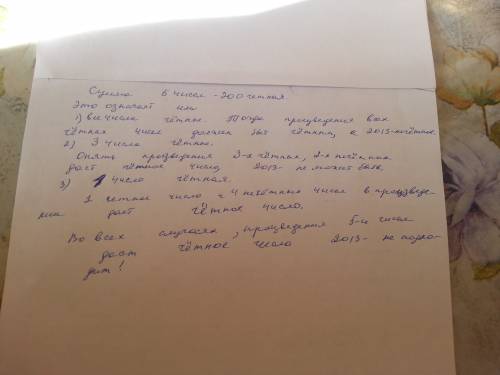 Сумма 5 чисел - 200 четная.
Это означает или
1) все числа чётные. Тогда произведения всех
чётных чисел должен быт чётным, а 2013-нечётное.
2) 3 числа чётные.
Опять произведения 3-х чётных, 2-х нечётных
даст чётное число, 2013- не может быть.
3) 1 число чётная.
1 четное число и 4 нечётные числа в произведе-
ния даст чётное число.
Во всех случаях, произведения 5-и чисел
даст чётное число 2013- не подхо-
дит!